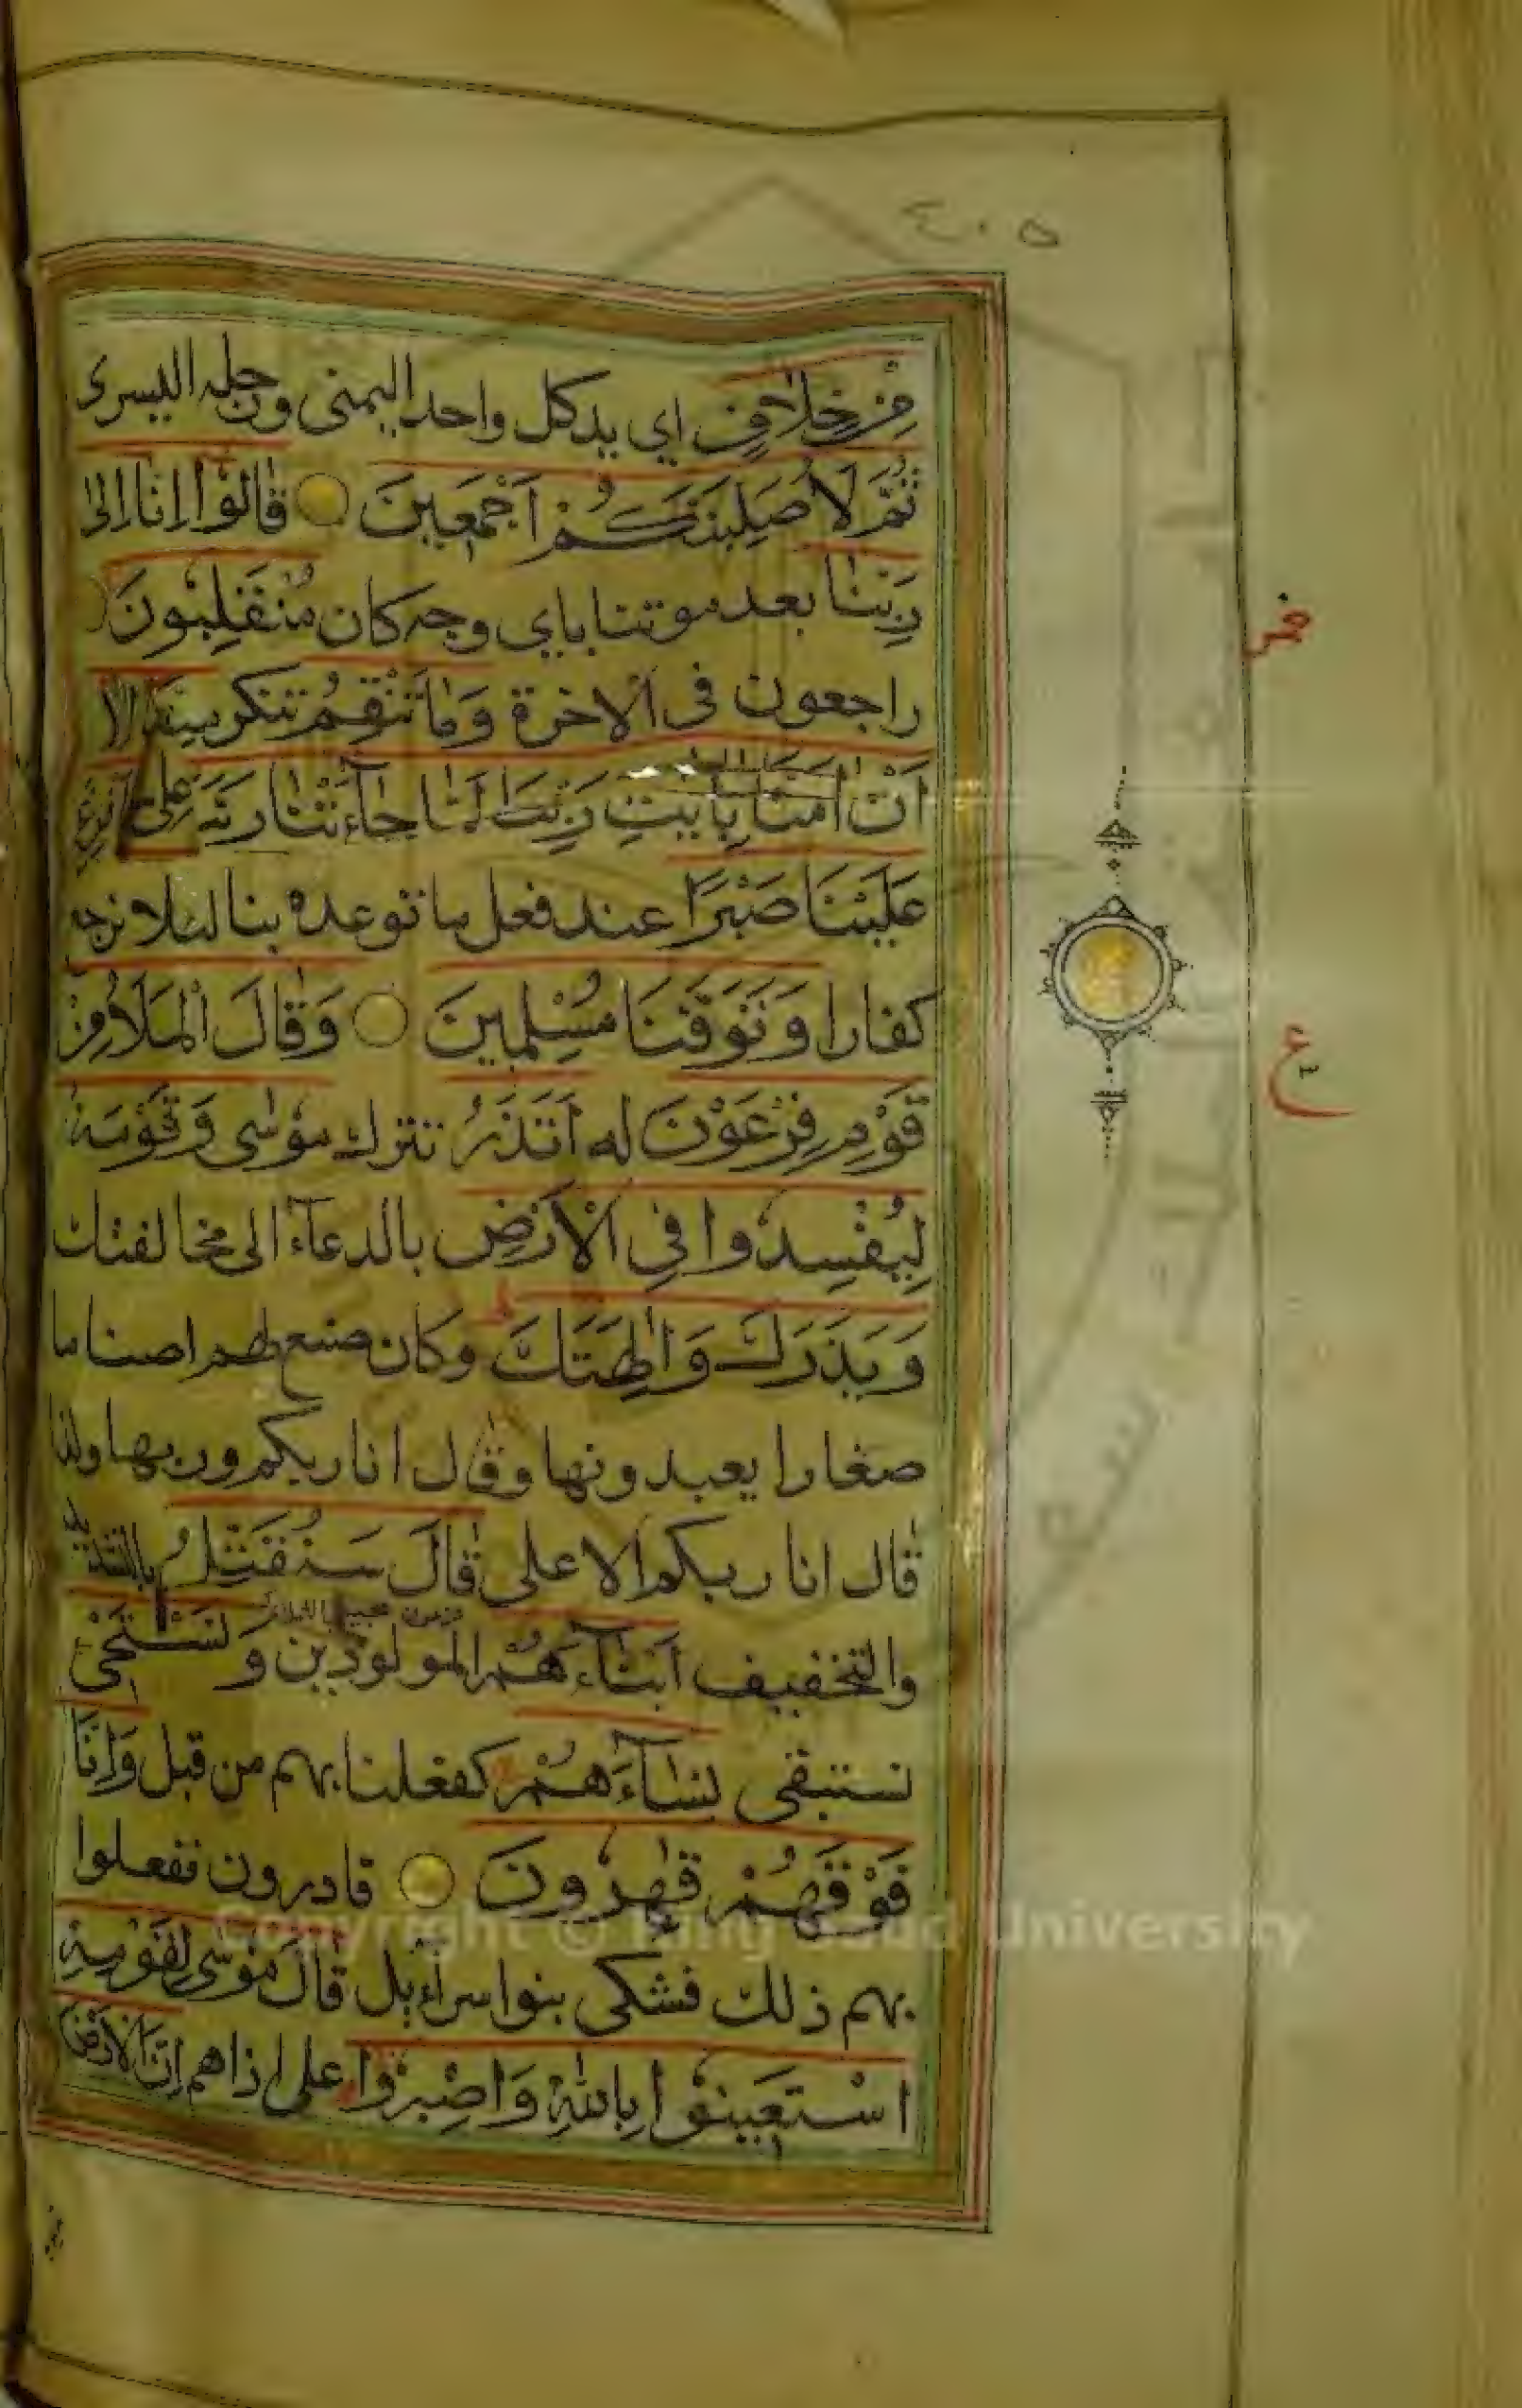 ٤٠٥
مِنْ خِلَافٍ اي يد كل واحد اليمنى ورجله اليسرى
ثُمَّ لَأُصَلِّبَنَّكُمْ أَجْمَعِينَ قَالُوا إِنَّا إِلَى
رَبِّنَا بعد موتنا باي وجه كان مُنْقَلِبُونَ
راجعون فى الاخرة وَمَا تَنْقِمُ تنكر مِنَّا إِلَّا
أَنْ آمَنَّا بِآيٰتِ رَبِّنَا لَمَّا جَاءَتْنَا رَبَّنَا أَفْرِغْ
عَلَيْنَا صَبْرًا عند فعل ما توعده بنا لئلا نرجع
كفارا وَتَوَفَّنَا مُسْلِمِينَ وَقَالَ الْمَلَأُ مِنْ
قَوْمِ فِرْعَوْنَ له أَتَذَرُ تترك مُوسَى وَقَوْمَهُ
لِيُفْسِدُوا فِي الْأَرْضِ بالدعاء الى مخالفتك
وَيَذَرَكَ وَآلِهَتَكَ وكان صنع لهم اصناما
صغارا يعبدونها وقال انا ربكم ورب بها ولذا
قال انا ربكم الاعلى قَالَ سَنُقَتِّلُ بالتشديد
والتخفيف أَبْنَاءَهُمْ المولودين وَنَسْتَحْيِي
نستبقى نِسَاءَهُمْ كفعلنا بهم من قبل وَإِنَّا
فَوْقَهُمْ قٰهِرُونَ قادرون ففعلوا
بهم ذلك فشكى بنوا سرآءيل قَالَ مُوسَى لِقَوْمِهِ
اسْتَعِينُوا بِاللّٰهِ وَاصْبِرُوا على اذاهم إِنَّ الْأَرْضَ
ع
Copyright © King Saud University